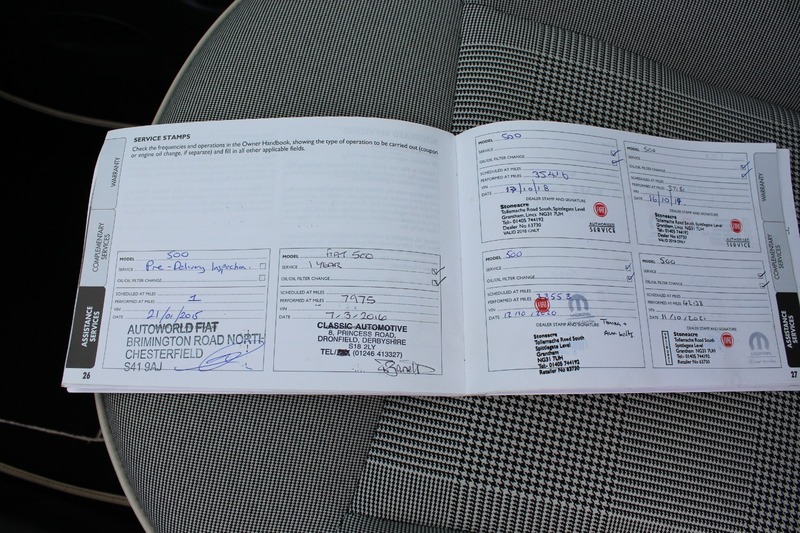 SERVICE STAMPS
Check the frequencies and operations in the Owner Handbook, showing the type of operation to be carried out (coupon
or engine oil change, if separate) and fill in all other applicable fields.
WARRANTY
COMPLEMENTARY
SERVICES
ASSISTANCE
SERVICES
MODEL 500
SERVICE Pre-Delivery Inspection
OIL/OIL FILTER CHANGE
SCHEDULED AT MILES
PERFORMED AT MILES 1
VIN
DATE 21/01/2015
AUTOWORLD FIAT
BRIMINGTON ROAD NORTH
CHESTERFIELD
S41 9AJ
26
MODEL FIAT 500
SERVICE 1 YEAR
OIL/OIL FILTER CHANGE
SCHEDULED AT MILES
PERFORMED AT MILES 7975
VIN
DATE 7-3-2016
CLASSIC AUTOMOTIVE
8, PRINCESS ROAD,
DRONFIELD, DERBYSHIRE
S18 2LY
(01246 413327)
MODEL 500
SERVICE
OIL/OIL FILTER CHANGE
SCHEDULED AT MILES
PERFORMED AT MILES
VIN
DATE 17/10/18
DEALER STAMP AND SIGNATURE
Stoneacre
Tollemache Road South, Spittlegate Level
Grantham, Lincs. NG31 7UH
Tel:- 01405 744192
Dealer No 63730
VALID 2018 ONLY
FIAT
AUTHORISED
SERVICE
MODEL 500
SERVICE
OIL/OIL FILTER CHANGE
SCHEDULED AT MILES
PERFORMED AT MILES
VIN
DATE 16/10/19
DEALER STAMP AND SIGNATURE
Stoneacre
Tollemache Road South, Spittlegate Level
Grantham, Lincs. NG31 7UH
Tel:- 01405 744192
Dealer No 63730
FIAT
SERVICE
MODEL 500
SERVICE
OIL/OIL FILTER CHANGE
SCHEDULED AT MILES
PERFORMED AT MILES
VIN
DATE 12/10/2020
DEALER STAMP AND SIGNATURE
Stoneacre
Tollemache Road South
Spittlegate Level
Grantham
NG31 7UH
Tel: 01405 744192
Retailer No 63730
FIAT
MODEL 500
SERVICE
OIL/OIL FILTER CHANGE
SCHEDULED AT MILES
PERFORMED AT MILES
VIN
DATE 11/10/2021
DEALER STAMP AND SIGNATURE
Stoneacre
Tollemache Road South
Spittlegate Level
Grantham
NG31 7UH
Tel: 01405 744192
Retailer No 63730
FIAT
WARRANTY
COMPLEMENTARY
SERVICES
ASSISTANCE
SERVICES
27